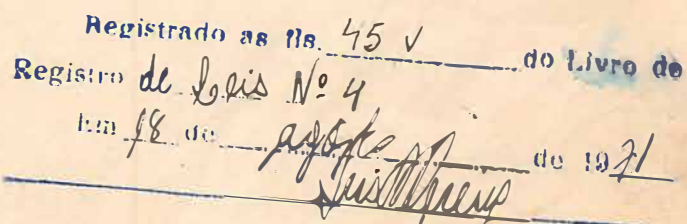 Registrado as fls. 45 v do Livro de
Registro de Leis Nº 4
Em 18 de agosto de 1971